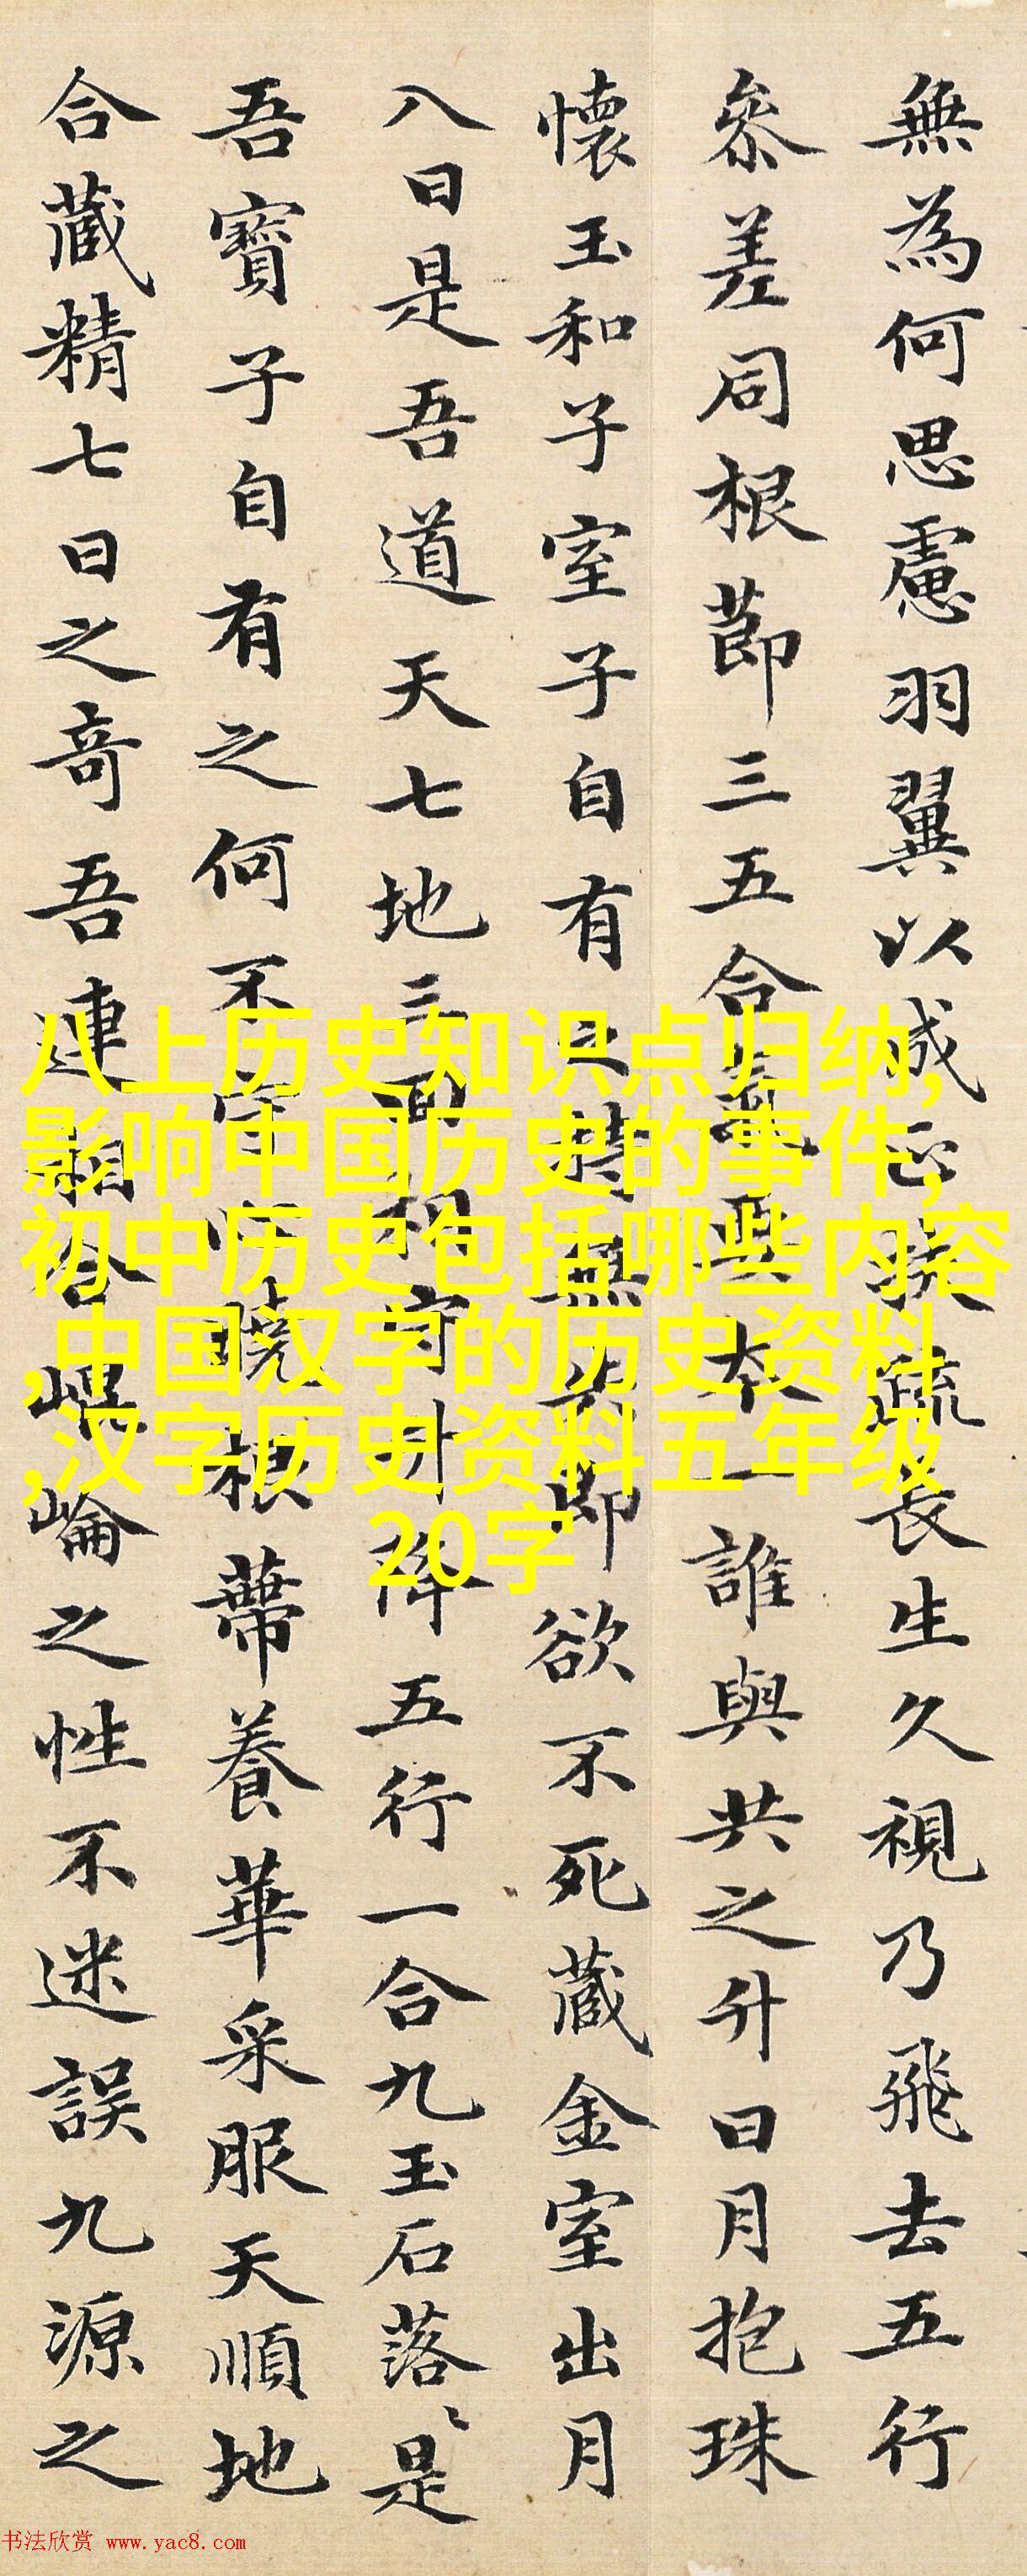 無為何思慮羽翼以成正扶疏長生久視乃飛去五行
叅差同根莭三五合氣要本一誰與共之升日月抱珠
懷玉和子室子自有之持無失即欲不死藏金室出月
八日是吾道天七地三回相守升降五行一合九玉石落〻是
吾寶子自有之何不守心曉根蔕養華采服天順地
合藏精七日之奇吾連相合崐崘之性不迷誤九源之
八上历史知识点归纳,
影响中国历史的事件,
初中历史包括哪些内容
,中国汉字的历史资料
,汉字历史资料五年级
20字
书法欣赏 www.yac8.com